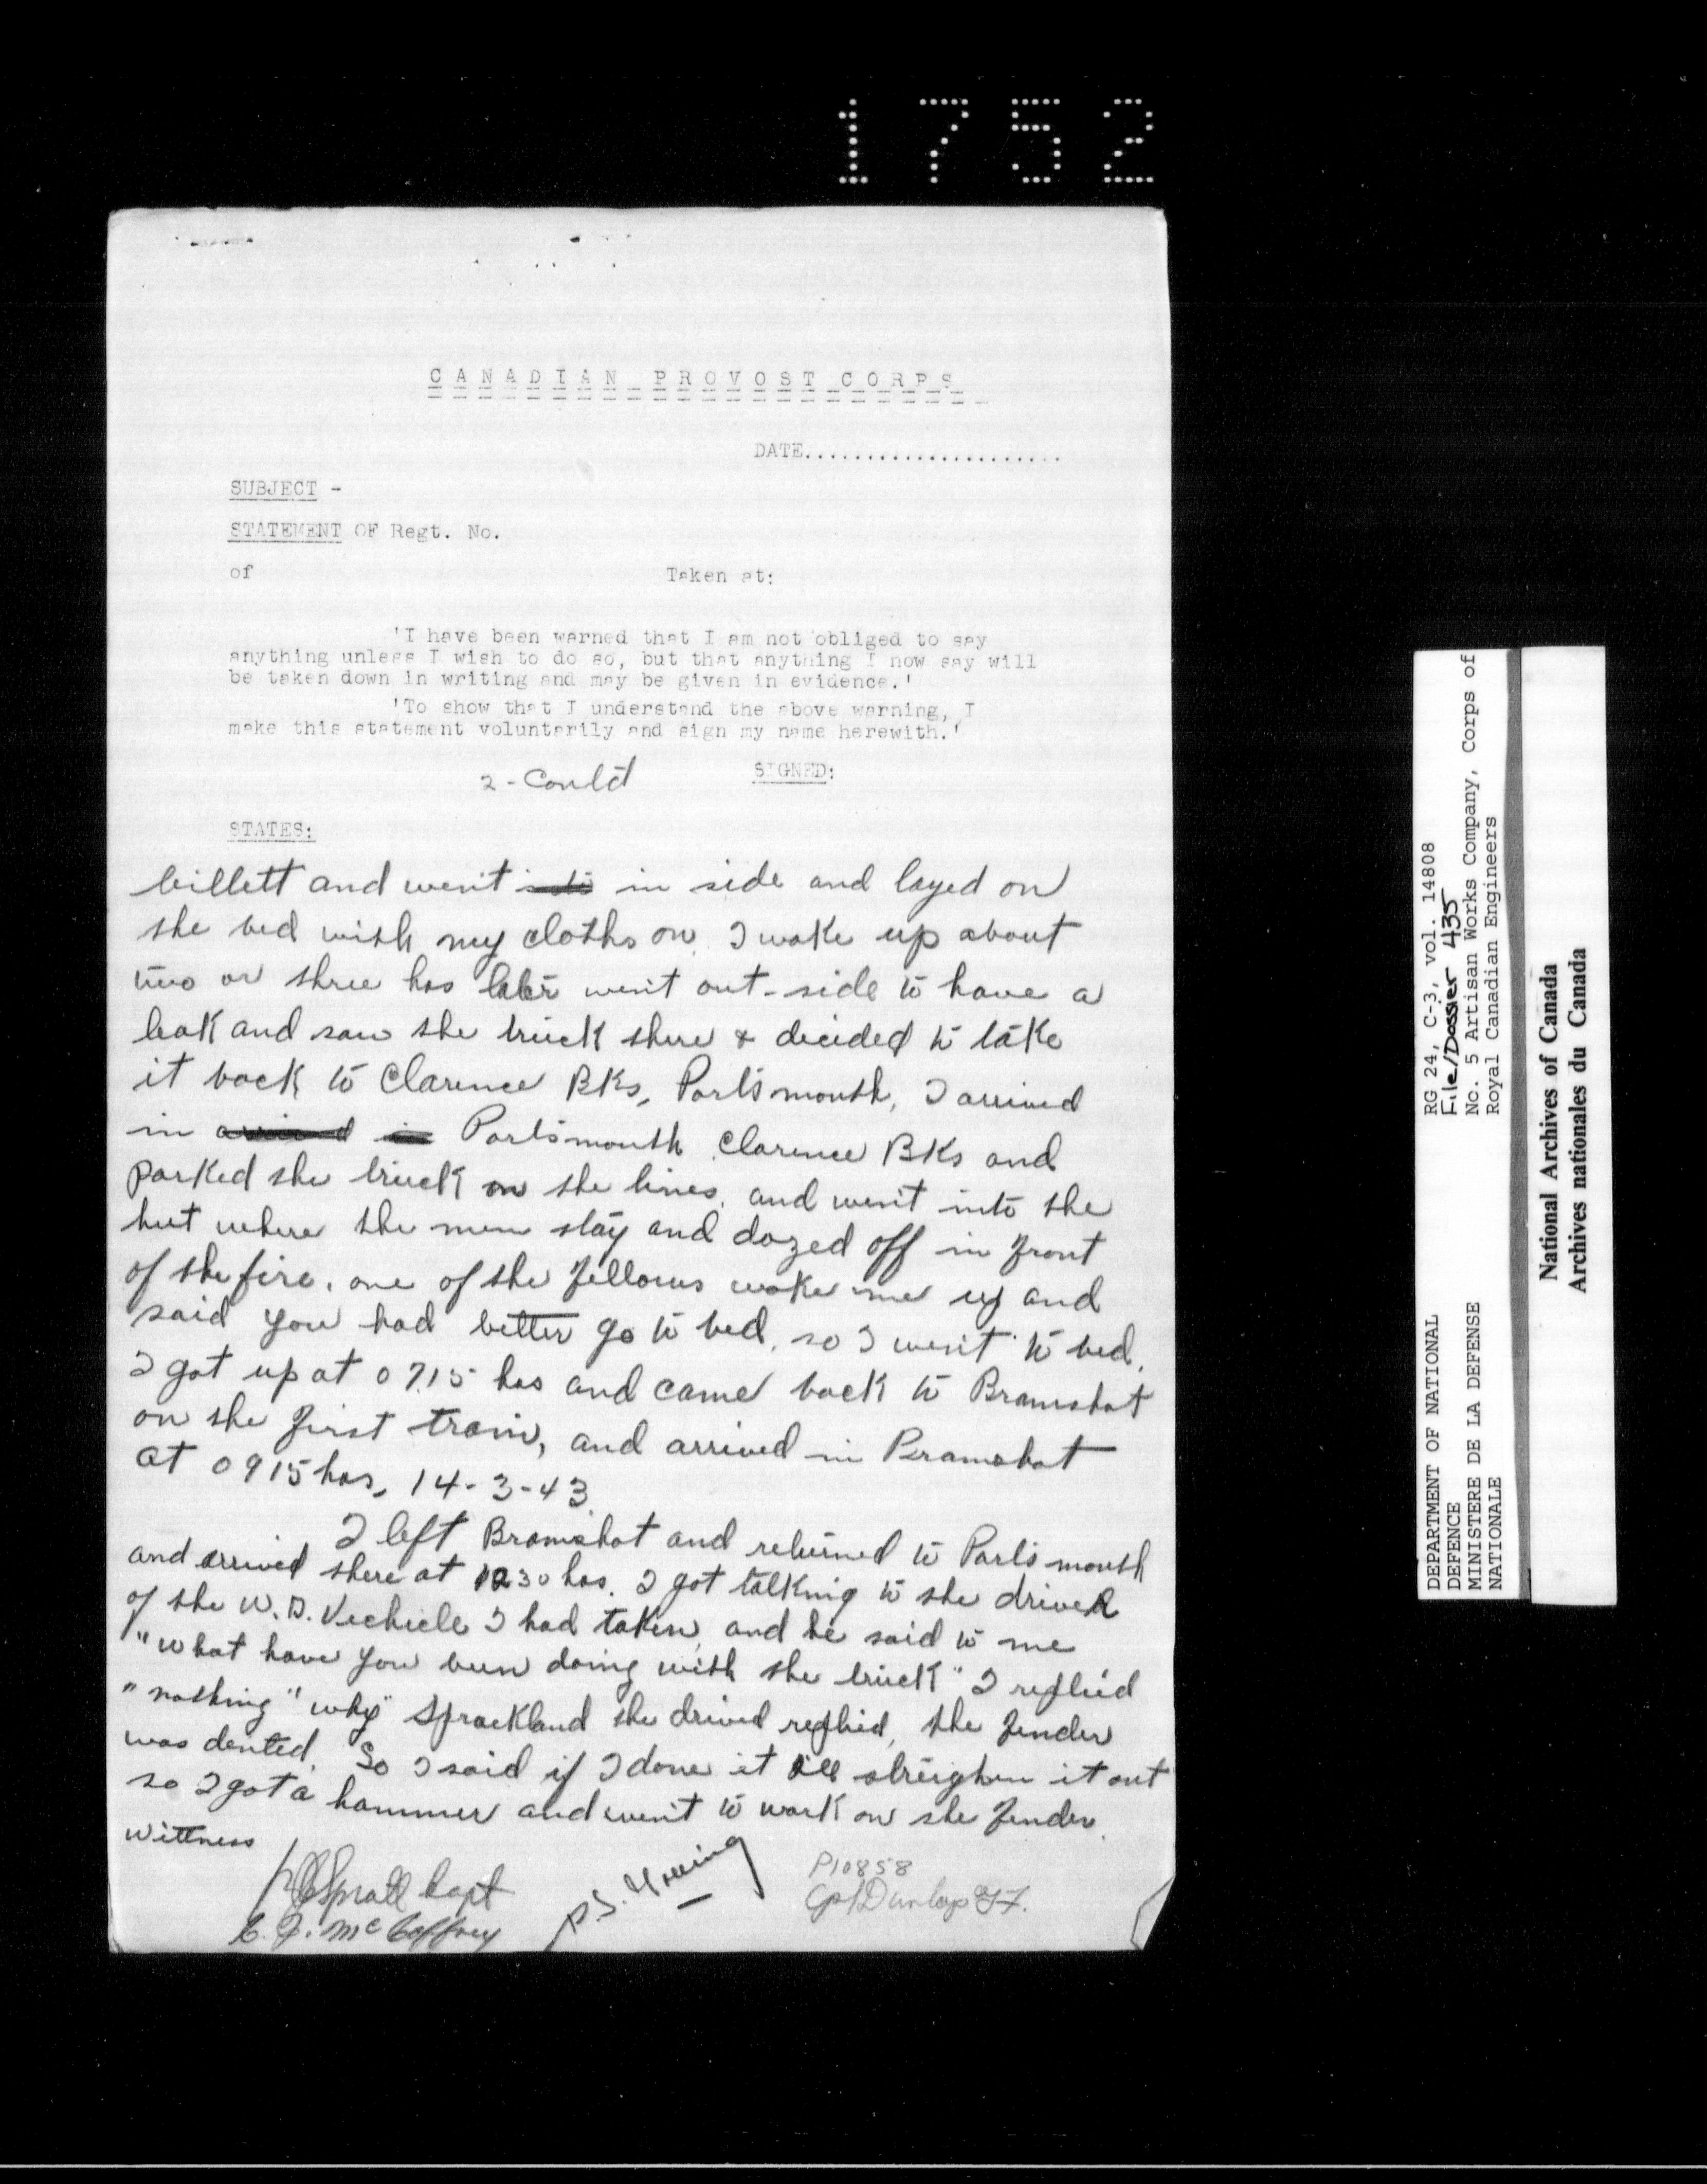 1752
CANADIAN PROVOST CORPS
DATE.....................
SUBJECT -
STATEMENT OF Regt. No.
of Taken at:
'I have been warned that I am not obliged to say
anything unless I wish to do so, but that anything I now say will
be taken down in writing and may be given in evidence.'
'To show that I understand the above warning, I
make this statement voluntarily and sign my name herewith.'
2 - Cont'd SIGNED:
STATES:
billett and went in side and layed on
the bed with my cloths on. I woke up about
two or three hrs later went out-side to have a
leak and saw the truck there & decided to take
it back to Clarence BKs, Portsmouth, I arrived
in arrived in Portsmouth Clarence BKs and
parked the truck on the lines, and went into the
hut where the men stay and dozed off in front
of the fire, one of the fellows woke me up and
said you had better go to bed, so I went to bed.
I got up at 0715 hrs and came back to Bramshot
on the first train, and arrived in Bramshot
at 0915 hrs, 14-3-43.
I left Bramshot and returned to Portsmouth
and arrived there at 1230 hrs. I got talking to the driver
of the W.D. Vechicle I had taken, and he said to me
"what have you been doing with the truck" I replied
"nothing" "why" Sprackland the drived replied, the fender
was dented. So I said if I done it ill streighen it out
so I got a hammer and went to work on the fender.
Wittness
Spratt Capt
C. J. McCaffrey
P10858
Cpl Dunlop
RG 24, C-3, vol. 14808
File/Dossier 435
No. 5 Artisan Works Company, Corps of
Royal Canadian Engineers
DEPARTMENT OF NATIONAL
DEFENCE
MINISTERE DE LA DEFENSE
NATIONALE
National Archives of Canada
Archives nationales du Canada